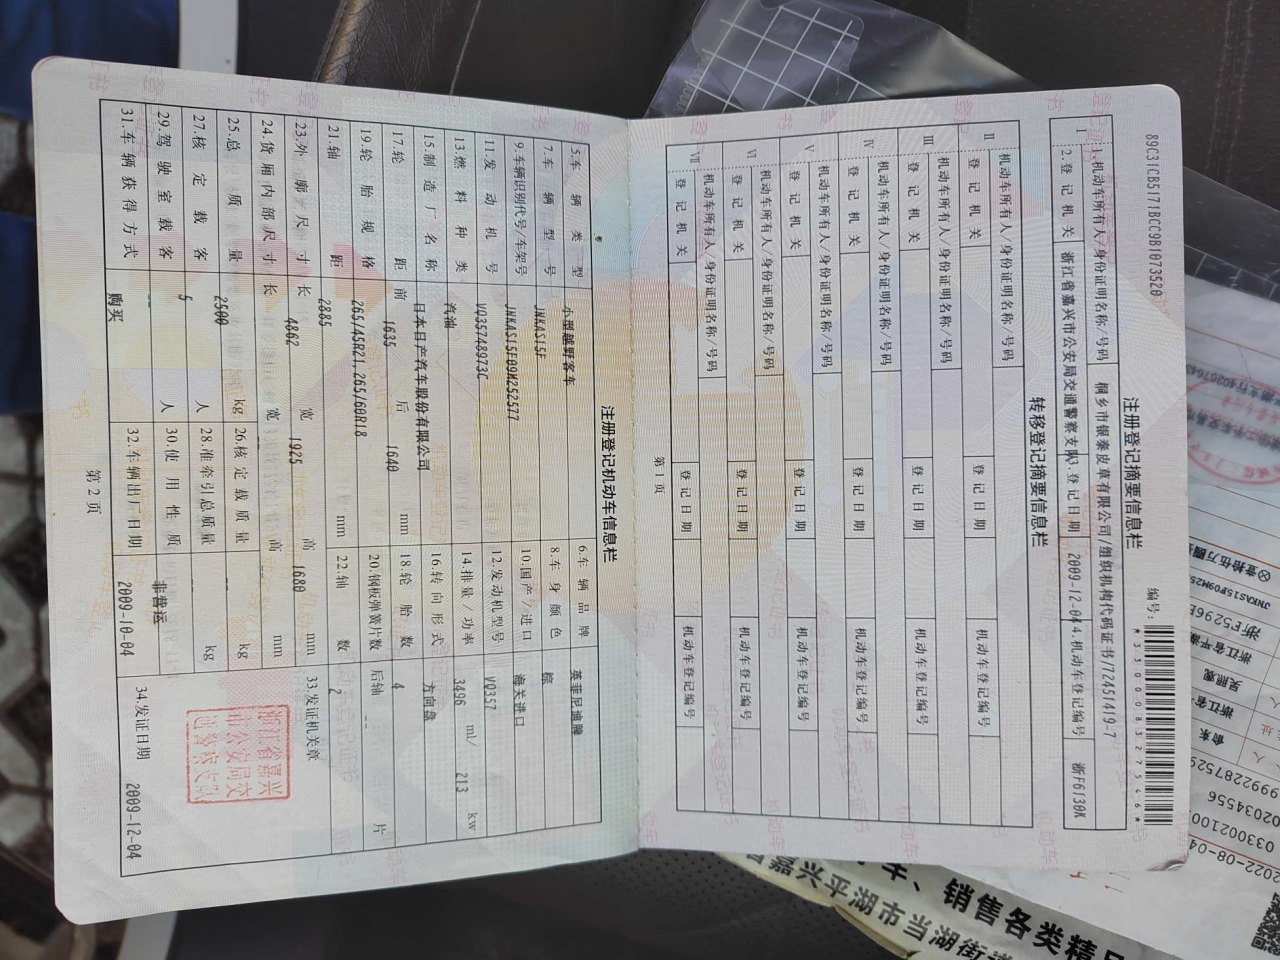 89C31CB5171BCC9B1073520
编号:
*330008327546*
注册登记摘要信息栏
I
1.机动车所有人/身份证明名称/号码 桐乡市银泰皮草有限公司/组织机构代码证书/72451419-7
2.登记机关 浙江省嘉兴市公安局交通警察支队 3.登记日期 2009-12-04 4.机动车登记编号 浙F6130K
转移登记摘要信息栏
II 机动车所有人/身份证明名称/号码
登记机关 登记日期 机动车登记编号
III 机动车所有人/身份证明名称/号码
登记机关 登记日期 机动车登记编号
IV 机动车所有人/身份证明名称/号码
登记机关 登记日期 机动车登记编号
V 机动车所有人/身份证明名称/号码
登记机关 登记日期 机动车登记编号
VI 机动车所有人/身份证明名称/号码
登记机关 登记日期 机动车登记编号
VII 机动车所有人/身份证明名称/号码
登记机关 登记日期 机动车登记编号
第1页
注册登记机动车信息栏
5.车辆类型 小型越野客车 6.车辆品牌 英菲尼迪牌
7.车辆型号 JNKAS15F 8.车身颜色 棕
9.车辆识别代号/车架号 JNKAS15F09M252577 10.国产/进口 海关进口
11.发动机号 VQ35748973C 12.发动机型号 VQ357
13.燃料种类 汽油 14.排量/功率 3496 ml/ 213 kw
15.制造厂名称 日本日产汽车股份有限公司 16.转向形式 方向盘
17.轮距 前 1635 后 1640 mm 18.轮胎数 4
19.轮胎规格 265/45R21,265/60R18 20.钢板弹簧片数 后轴 -- 片
21.轴距 2885 mm 22.轴数 2
23.外廓尺寸 长 4862 宽 1925 高 1680 mm 33.发证机关章
24.货厢内部尺寸 长 宽 -- 高 -- mm
25.总质量 2500 kg 26.核定载质量 -- kg
27.核定载客 5 人 28.准牵引总质量 -- kg
29.驾驶室载客 -- 人 30.使用性质 非营运
31.车辆获得方式 购买 32.车辆出厂日期 2009-10-04 34.发证日期 2009-12-04
第2页
浙江省嘉兴
市公安局交
通警察支队
壹拾伍万圆
浙F5296E
浙江省平湖
吴照观
浙江省
俞东
02034556
033002100
2022-08-04
车、销售各类精品
嘉兴平湖市当湖街道